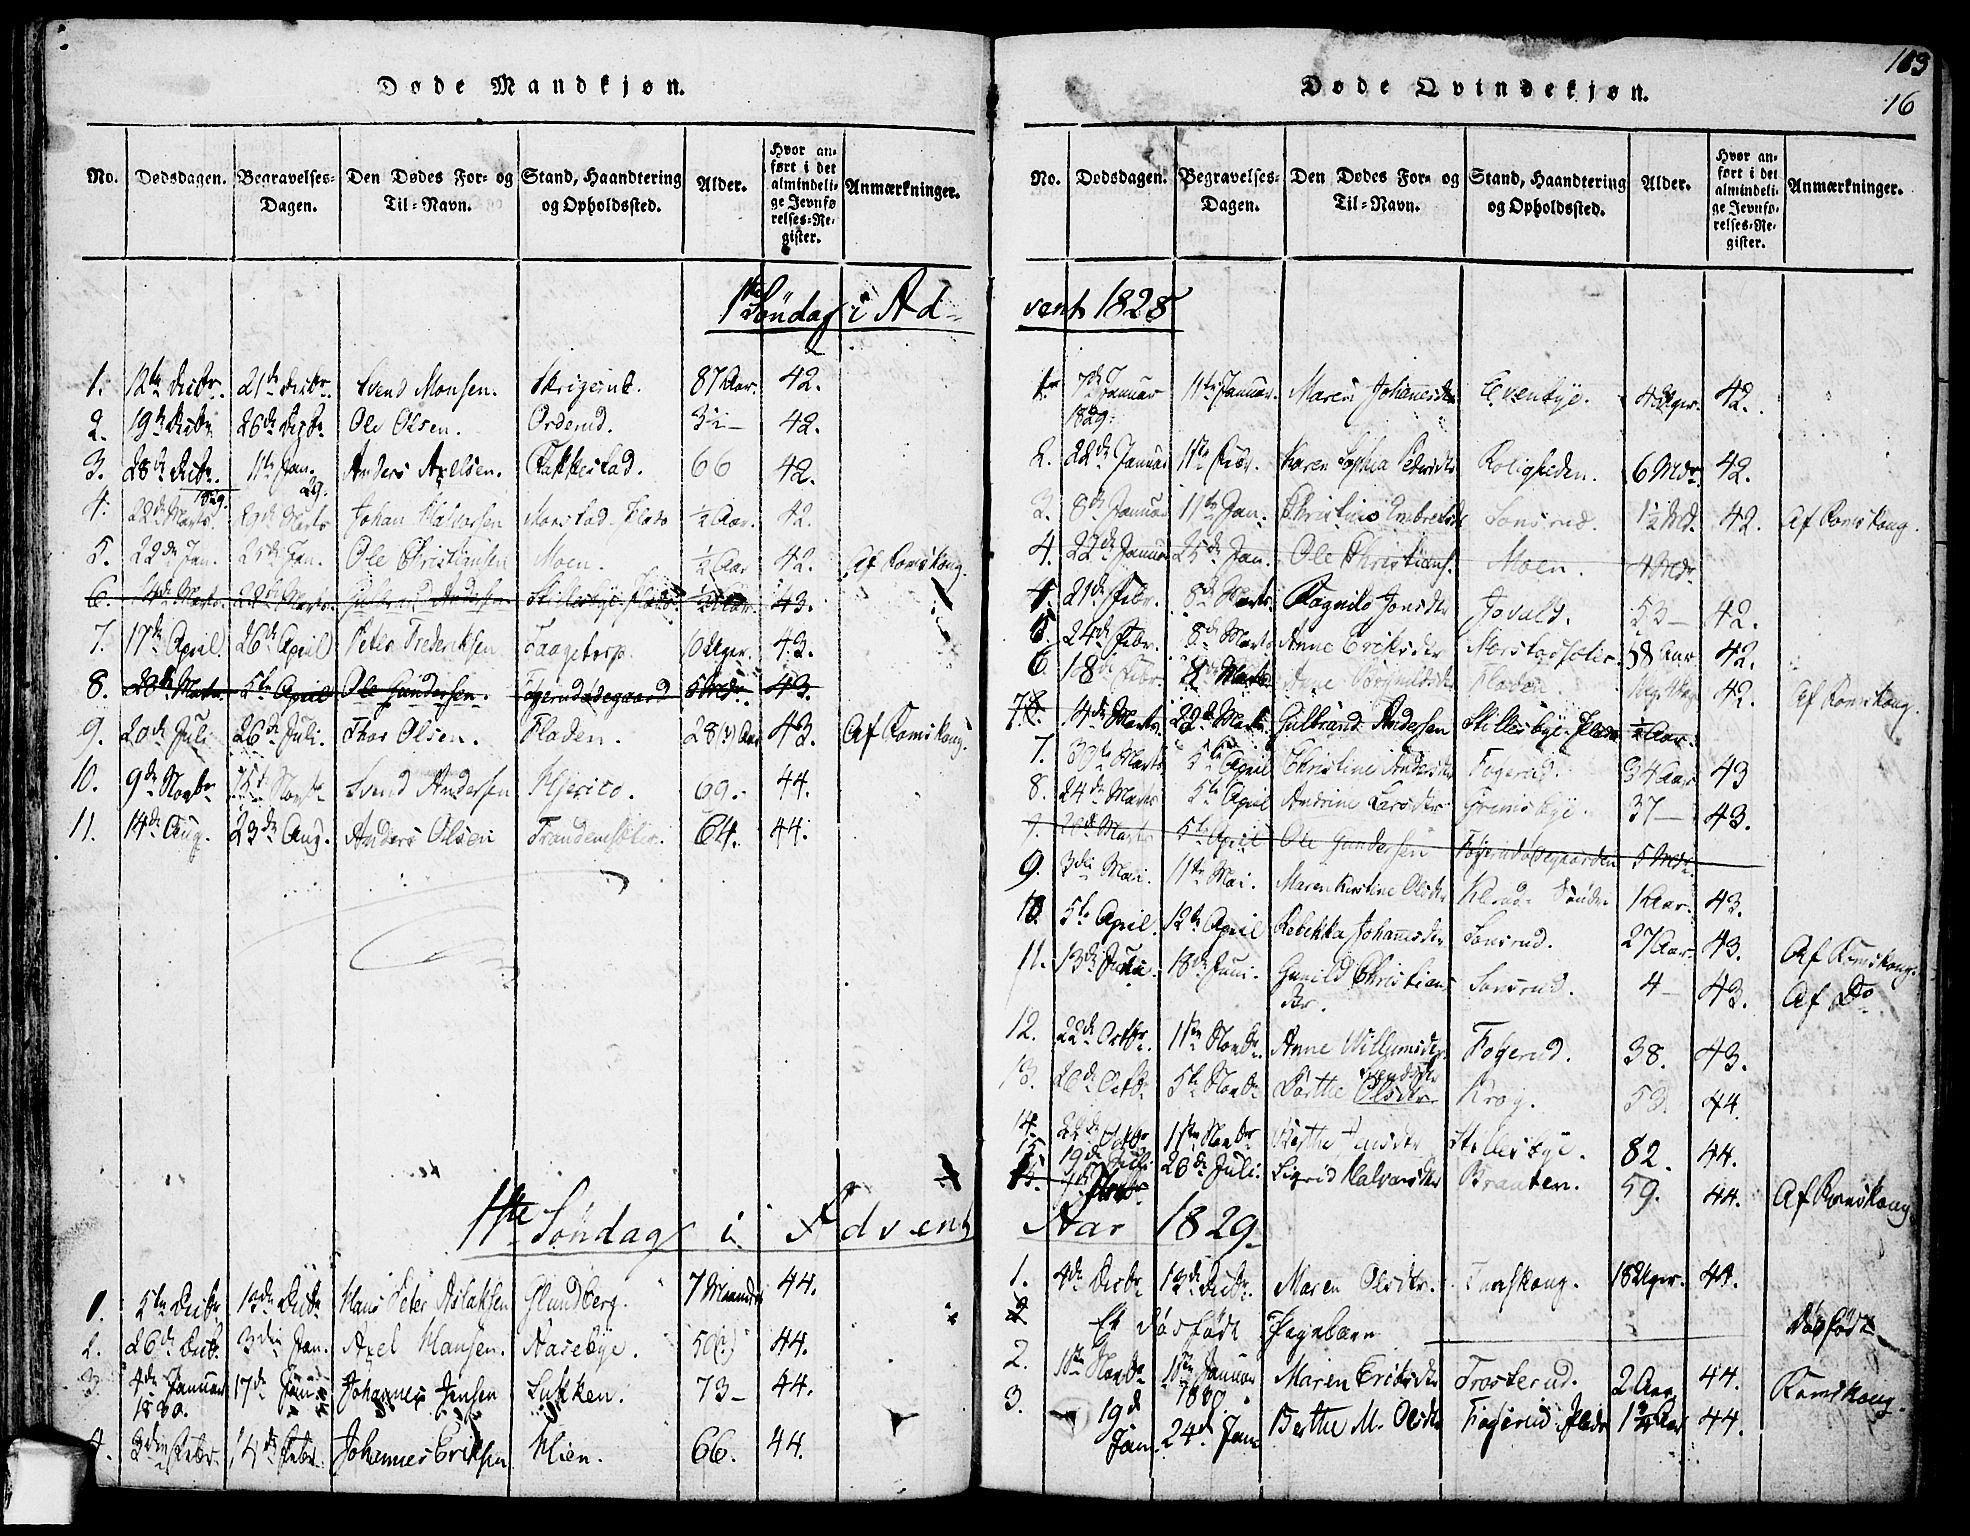 Døde Mandkjøn.
No. Dødsdagen. Begravelses-Dagen. Den Dødes For- og Til-Navn. Stand, Haandtering og Opholdssted. Alder. Hvor anført i det almindelige Jevnførelses-Register. Anmærkninger.
1ste Söndag i Ad-
1. 12te Decbr. 21de Decbr. Svend Monsen. 87 Aar. 42.
2. 19de Decbr. 26de Decbr. Ole Olsen. Orderud. 42.
3. 28de Decbr. 11te Jan. 29. Anders Axelsen. Takkestad. 66 42.
4. 1829. 22de Marts. Marts Johan Halvorsen ½ Aar. 42.
5. 22de Jan. 25de Jan. Ole Christiansen Moen. ½ Aar 42. Af Romskong.
6. 4de Marts. Marts. Gulbrand Andersen 43.
7. 17de April. 26de April Peter Frederiksen Taagetorp. 10 Uger. 43.
8. Marts. 5te April Ole Gundersen. Fogerudødegaard 5 Mdr. 43.
9. 20de Juli 26de Juli. Thor Olsen. Fladen. 28(?) Aar 43. Af Romskong.
10. 9de Novbr. 15de Novbr. Svend Andersen Hjerico. 69. 44.
11. 14de Aug. 23de Aug. Anders Olsen Trandemsæter. 64. 44.
1ste Søndag i Advent
1. 5te Decbr. Decbr. Hans Peter Aslaksen Grundberg. 7 Maaneder 44.
2. 26de Decb. 3die Jan. Axel Hansen. Aarebye. 50(?) 44.
3. 4de Januar 1830. 17de Jan. Johannes Jensen Lukken. 73 - 44.
4. 3die Febr. 14de Febr. Johannes Eriksen Klien. 66. 44.
103
16
Døde Qvindekjøn.
No. Dødsdagen. Begravelses-Dagen. Den Dødes For- og Til-Navn. Stand, Haandtering og Opholdssted. Alder. Hvor anført i det almindelige Jevnførelses-Register. Anmærkninger.
vent 1828
1. 7de Januar 1829. 11te Januar. Maren Johannesdtr Evenbye. 4 Uger. 42.
2. 22de Januar 1ste Febr. Karen Sophia Pedersdtr Roligheden. 6 Mdr. 42.
3. 8de Januar 11te Jan. Christine Embretsdtr Sonsrud. 1½ Md. 42. Af Romskong.
4. 22de Januar 25de Jan. Ole Christians. Moen. 4 Mdr.
4. 21de Febr. 8de Marts. Ragnild Jonsdtr Jovald. 53 - 42.
5. 24de Febr. 8de Marts Anne Eriksdtr 58 Aar 42.
6. 18de Febr. 8de Marts Anne Fladen. 42. Af Romskong.
7. 4de Marts. 22de Marts. Gulbrand Andersen Stillesbye ½ Aar.
7. Marts 5te April Christine Andersdtr Fogerud. 34 Aar 43
8. 24de Marts 5te April Andrine Larsdtr Grimsbye. 37 - 43.
9. Marts 5te April Ole Gundersen Fogerudødegaarden 5 Mdr.
9. 3die Mai. 11te Mai. Maren Kirstine Olsdtr 1 Aar. 43.
10. 5te April. 12te April Rebekka Johannesdtr Sonsrud. 27 Aar 43. Af Romskong.
11. 13de Juni. 18de Juni. Gunild Christians dtr. Sonsrud. 4 - 43. Af Do
12. 22de Octbr. 1ste Novbr. Anne Willumsdtr Fogerud. 38. 43.
13. 26de Octbr. 5te Novbr. Dorthe Olsdtr Krog. 53. 44.
14. 22de Octbr 1ste Novbr. Berthe Stillesbye. 82. 44.
15. 19de Juli. 26de Juli. Sigrid Halvorsdtr Braaten. 59. 44. Af Romskong.
Aar 1829.
1. 4de Decbr. 13de Decbr. Maren Olsdtr. 18 Uger. 44.
2 Et dødfødt Pigebarn Dødfødt
2. 1ste Novbr. Januar 1830 Maren Eriksdtr Trosterud. 2 Aar. 44. Romskong.
3. 19d Jan. 24d. Jan. Berthe M. Olsdtr Fogerud 44.